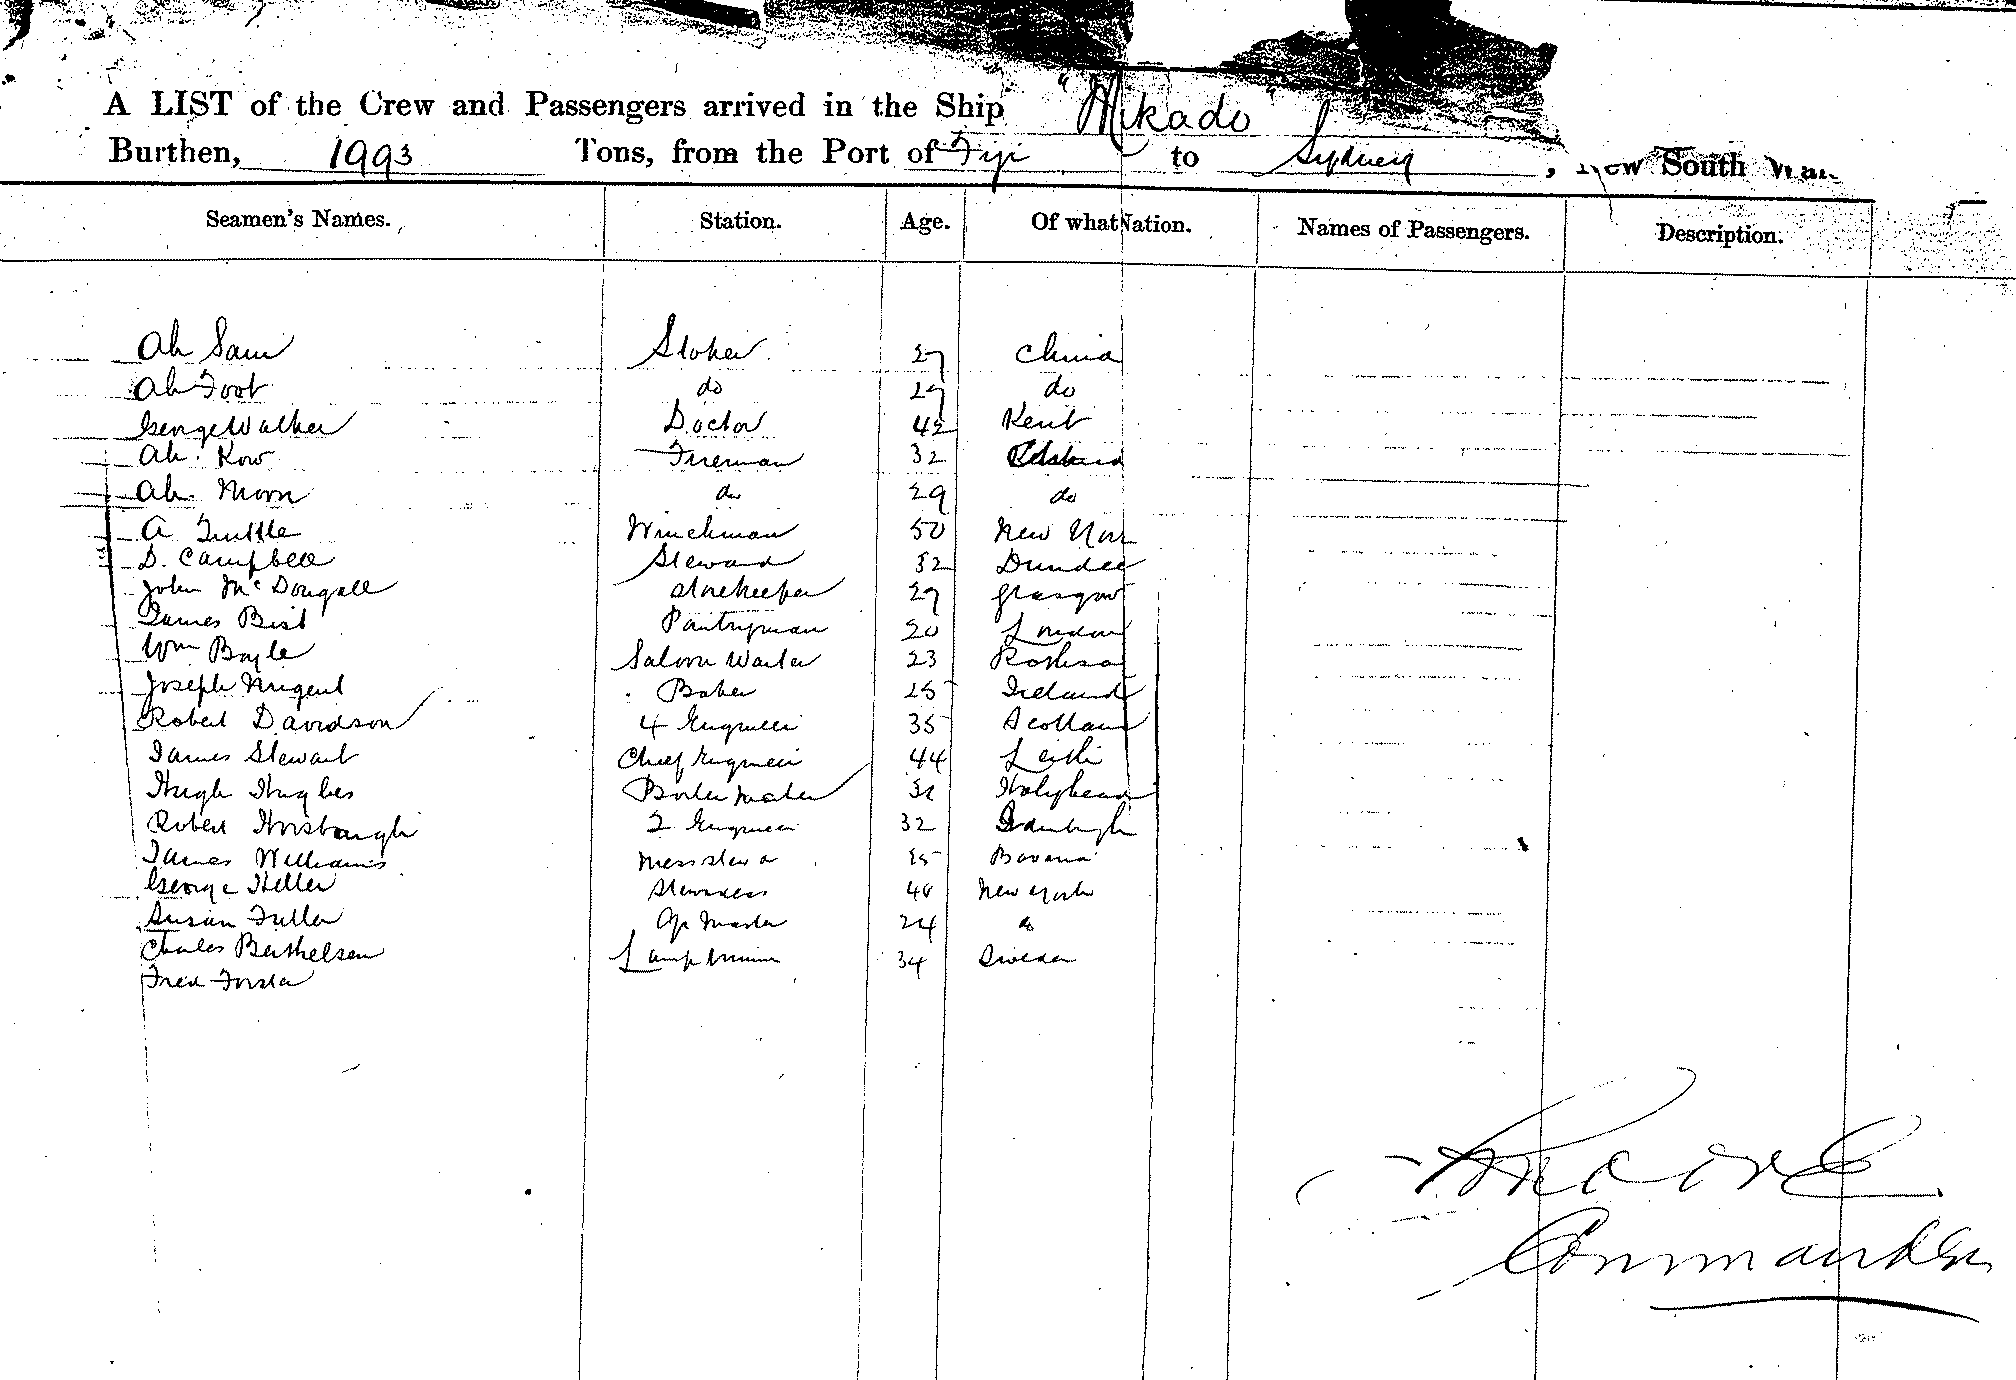 A LIST of the Crew and Passengers arrived in the Ship "Mikado"
Burthen, 1993 Tons, from the Port of Fiji to Sydney, New South
Seamen's Names. Station. Age. Of what Nation. Names of Passengers. Description.
Ah Sam Stoker 27 China
Ah Foot do 29 do
George Walker Doctor 42 Kent
Ah Kow Fireman 32
Ah Moon do 29 do
A Tuttle Winchman 50 New York
D. Campbell Steward 32 Dundee
John McDougall Storekeeper 29 Glasgow
James Bist Pantryman 20 London
Wm Boyle Saloon Waiter 23 Rothsa
Joseph Nugent Baker 25 Ireland
Robert Davidson 4 Engineer 35 Scotland
James Stewart Chief Engineer 44 Leith
Hugh Hughes Boiler Maker 31 Holyhead
Robert Horsbaugh 2 Engineer 32 Edinburgh
James Williams Mess stewa 25 Bavaria
George Heller Stewardess 40 New York
Susan Fuller Qr Master 24 do
Charles Berthelsen Lamp trimmer 34 Sweden
Fred Forster
Moore
Commander